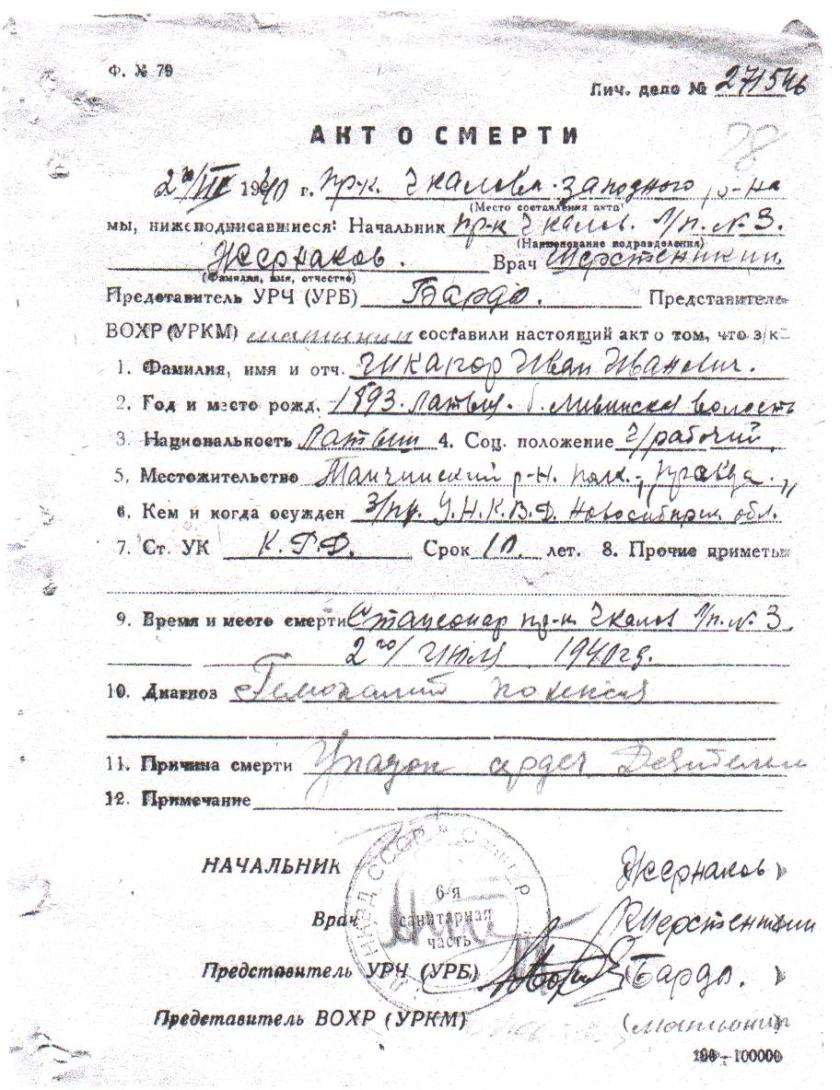 Ф. № 79
Лич. дело № 271546
28
АКТ О СМЕРТИ
2го/VII 1940 г. пр-к. Чкалова-западного р-на
(Место составления акта)
мы, нижеподписавшиеся: Начальник пр-к Чкалов. л/п. №. 3.
(Наименование подразделения)
Жернаков. Врач
(Фамилия, имя, отчество)
Представитель УРЧ (УРБ) Бардо. Представитель
ВОХР (УРКМ) составили настоящий акт о том, что з/к
1. Фамилия, имя и отч. Чикапор Иван Иванович.
2. Год и место рожд. 1893. Латвия. б. Ливинская волость
3. Национальность Латыш 4. Соц. положение ч/рабочий,
5. Местожительство р-н. „Правда"
6. Кем и когда осужден У.Н.К.В.Д. Новосибирск обл.
7. Ст. УК К.Р.Д. Срок 10 лет. 8. Прочие приметы
9. Время и место смерти Стационар пр-к Чкалов л/п. №. 3.
2го/ Июля 1940 гд.
10. Диагноз
11. Причина смерти Упадок сердеч деятельн
12. Примечание
НАЧАЛЬНИК Жернаков)
6-я
Врач санитарная
часть
НКВД СССР
Представитель УРЧ (УРБ) (Бардо.)
Представитель ВОХР (УРКМ)
100000